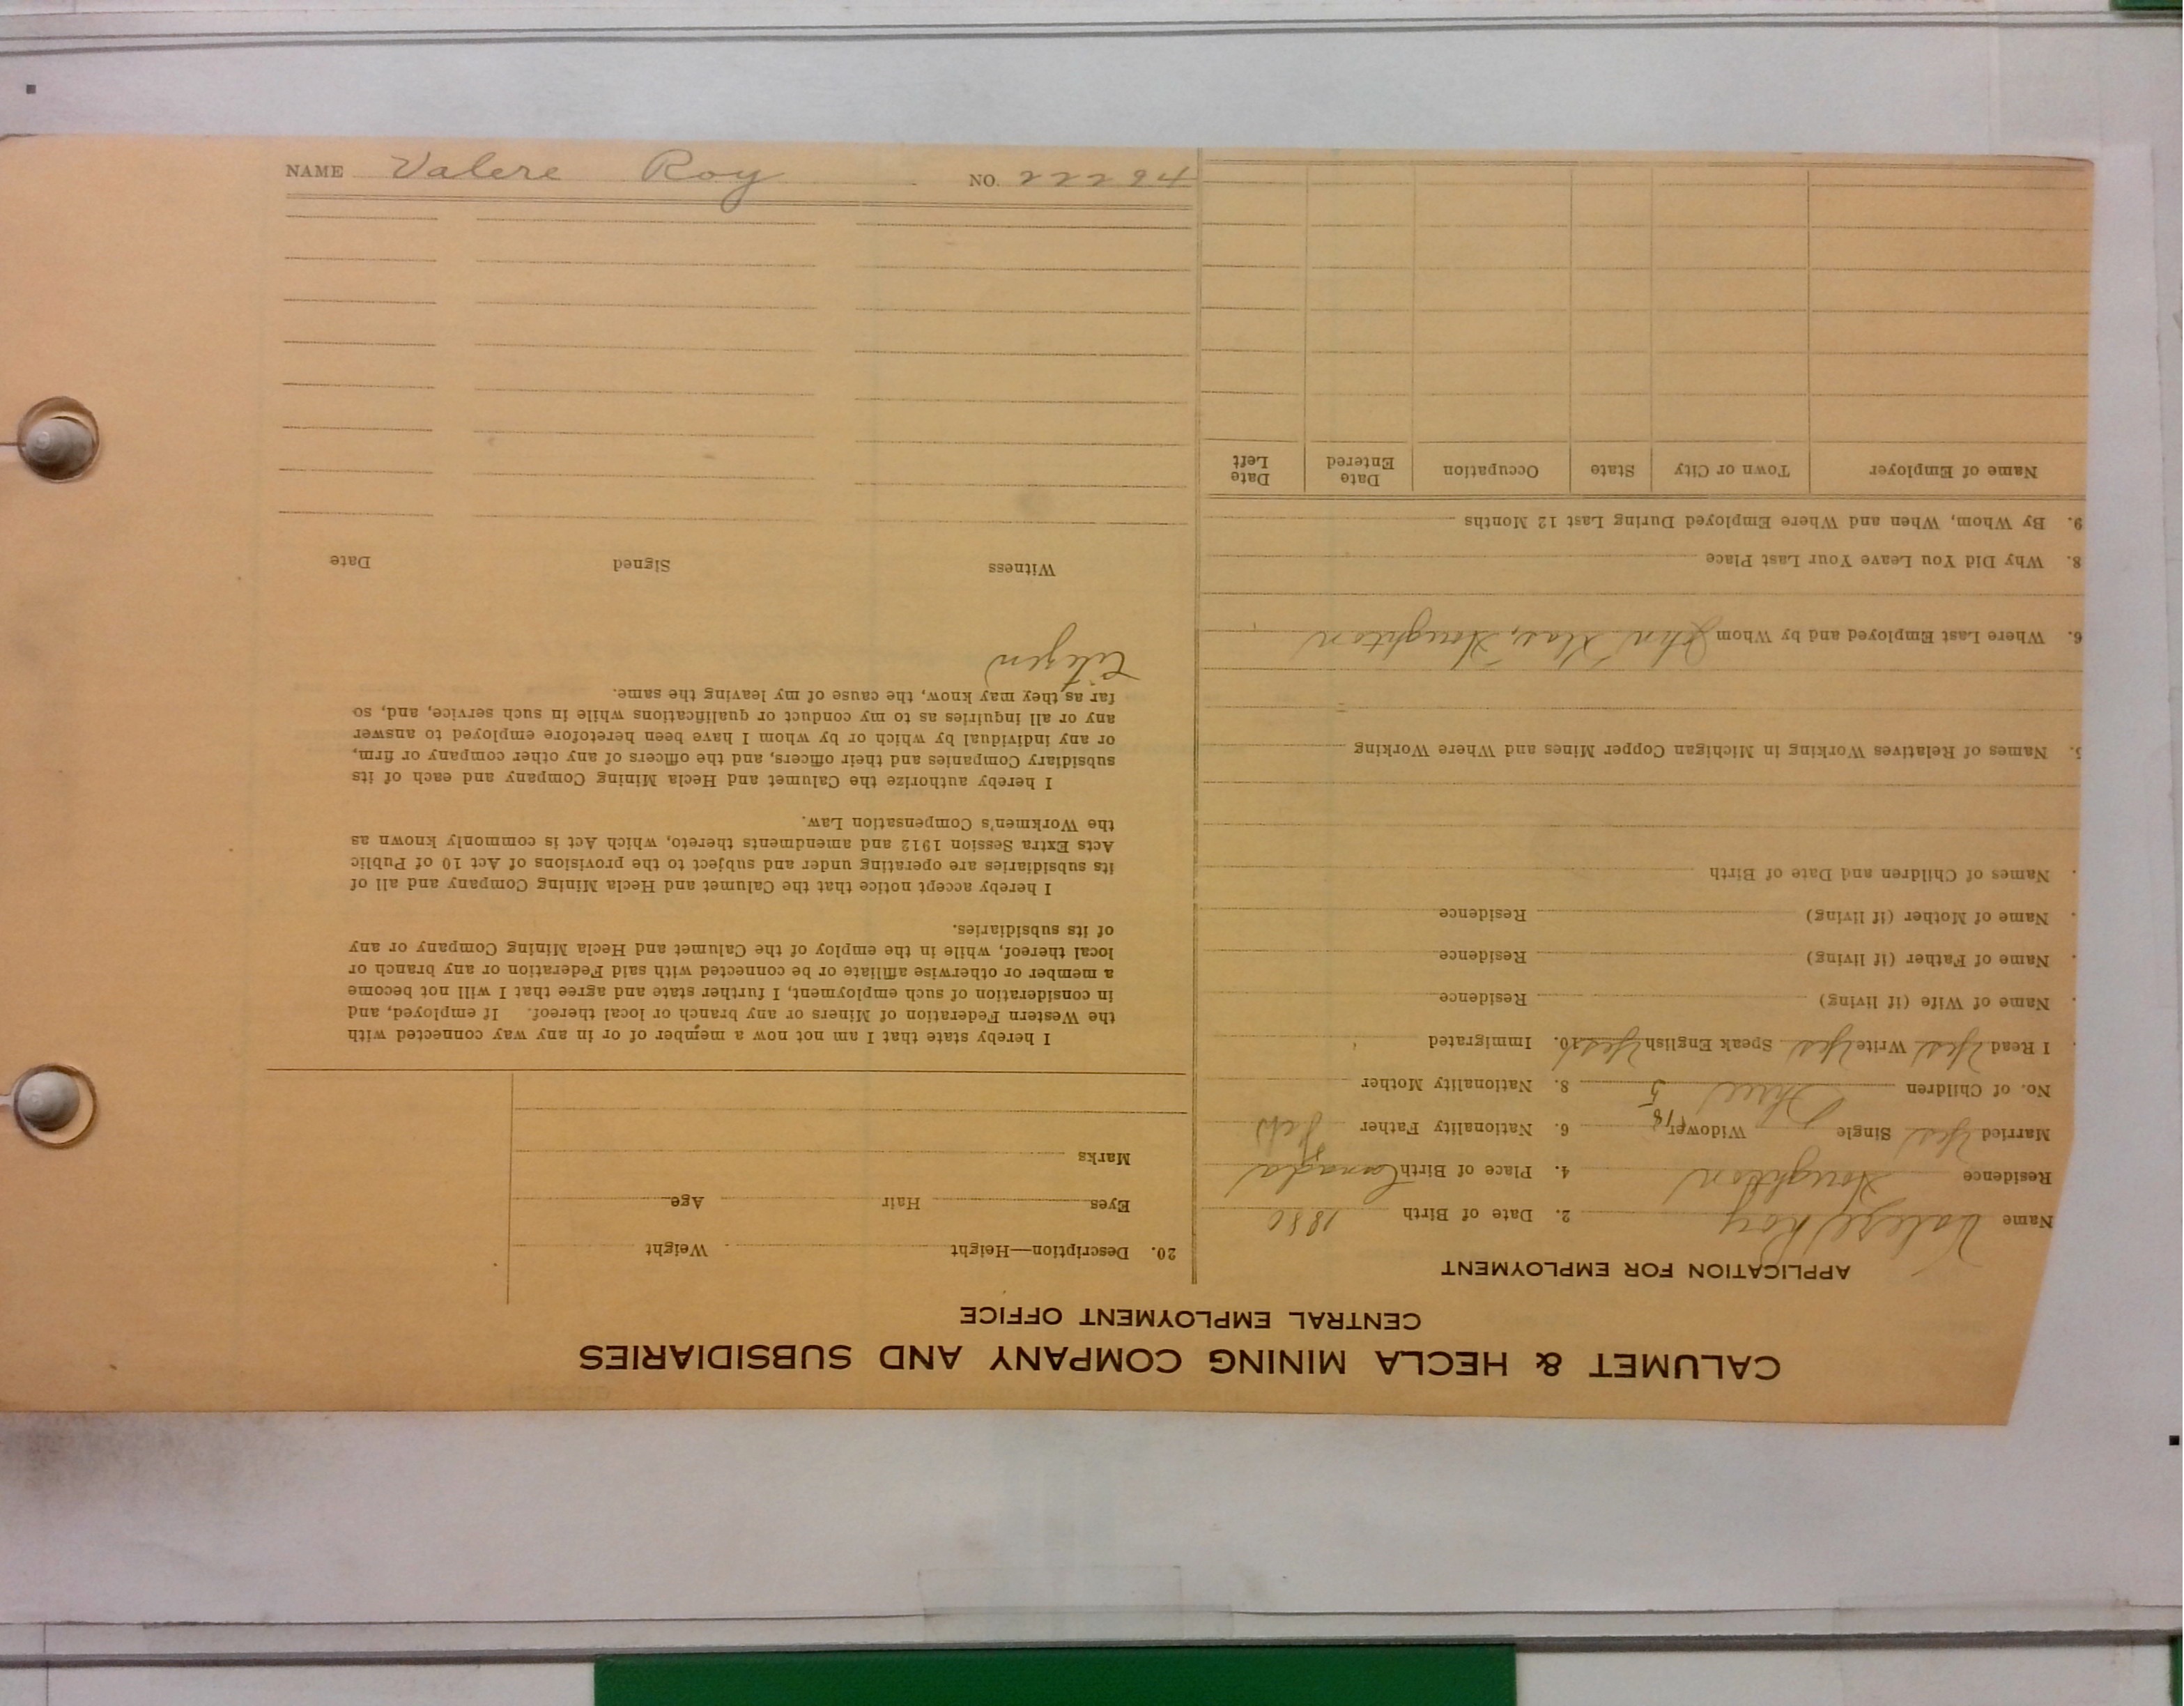 NAME Valere Roy NO. 22294
CALUMET & HECLA MINING COMPANY AND SUBSIDIARIES
CENTRAL EMPLOYMENT OFFICE
APPLICATION FOR EMPLOYMENT
Name Valere Roy 2. Date of Birth 1880
Residence Houghton 4. Place of Birth Canada
Married Yes Single Widower 6. Nationality Father
No. of Children Three 5 8. Nationality Mother
I Read Yes Write Yes Speak English Yes 10. Immigrated
Name of Wife (if living) Residence
Name of Father (if living) Residence
Name of Mother (if living) Residence
Names of Children and Date of Birth
Names of Relatives Working in Michigan Copper Mines and Where Working
6. Where Last Employed and by Whom John Houghton
8. Why Did You Leave Your Last Place
9. By Whom, When and Where Employed During Last 12 Months
Name of Employer Town or City State Occupation Date Entered Date Left
20. Description—Height Weight
Eyes Hair Age
Marks
I hereby state that I am not now a member of or in any way connected with
the Western Federation of Miners or any branch or local thereof. If employed, and
in consideration of such employment, I further state and agree that I will not become
a member or otherwise affiliate or be connected with said Federation or any branch or
local thereof, while in the employ of the Calumet and Hecla Mining Company or any
of its subsidiaries.
I hereby accept notice that the Calumet and Hecla Mining Company and all of
its subsidiaries are operating under and subject to the provisions of Act 10 of Public
Acts Extra Session 1912 and amendments thereto, which Act is commonly known as
the Workmen's Compensation Law.
I hereby authorize the Calumet and Hecla Mining Company and each of its
subsidiary Companies and their officers, and the officers of any other company or firm,
or any individual by which or by whom I have been heretofore employed to answer
any or all inquiries as to my conduct or qualifications while in such service, and, so
far as they may know, the cause of my leaving the same.
Citizen
Witness Signed Date